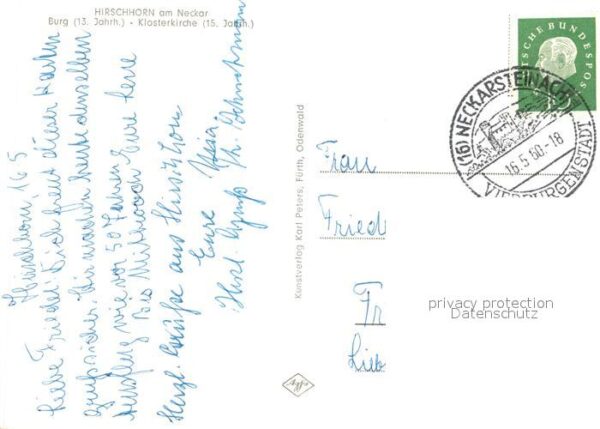 HIRSCHHORN am Neckar
Burg (13. Jahrh.) · Klosterkirche (15. Jahrh.)
Hirschhorn, 16 5
Liebe Friedel! Dich freut diese Karte
sicher. Wir machen heute denselben
Ausflug wie vor 50 Jahren
Bis Mittwoch Eure
Herzl. Grüße aus Hirschhorn
Eure
Herzl. Gruß
Kunstverlag Karl Peters, Fürth, Odenwald
DEUTSCHE BUNDESPOST
(16) NECKARSTEINACH
16.5.60-18
VIERBURGENSTADT
Frau
Fried
Fr
Lieb
privacy protection
Datenschutz